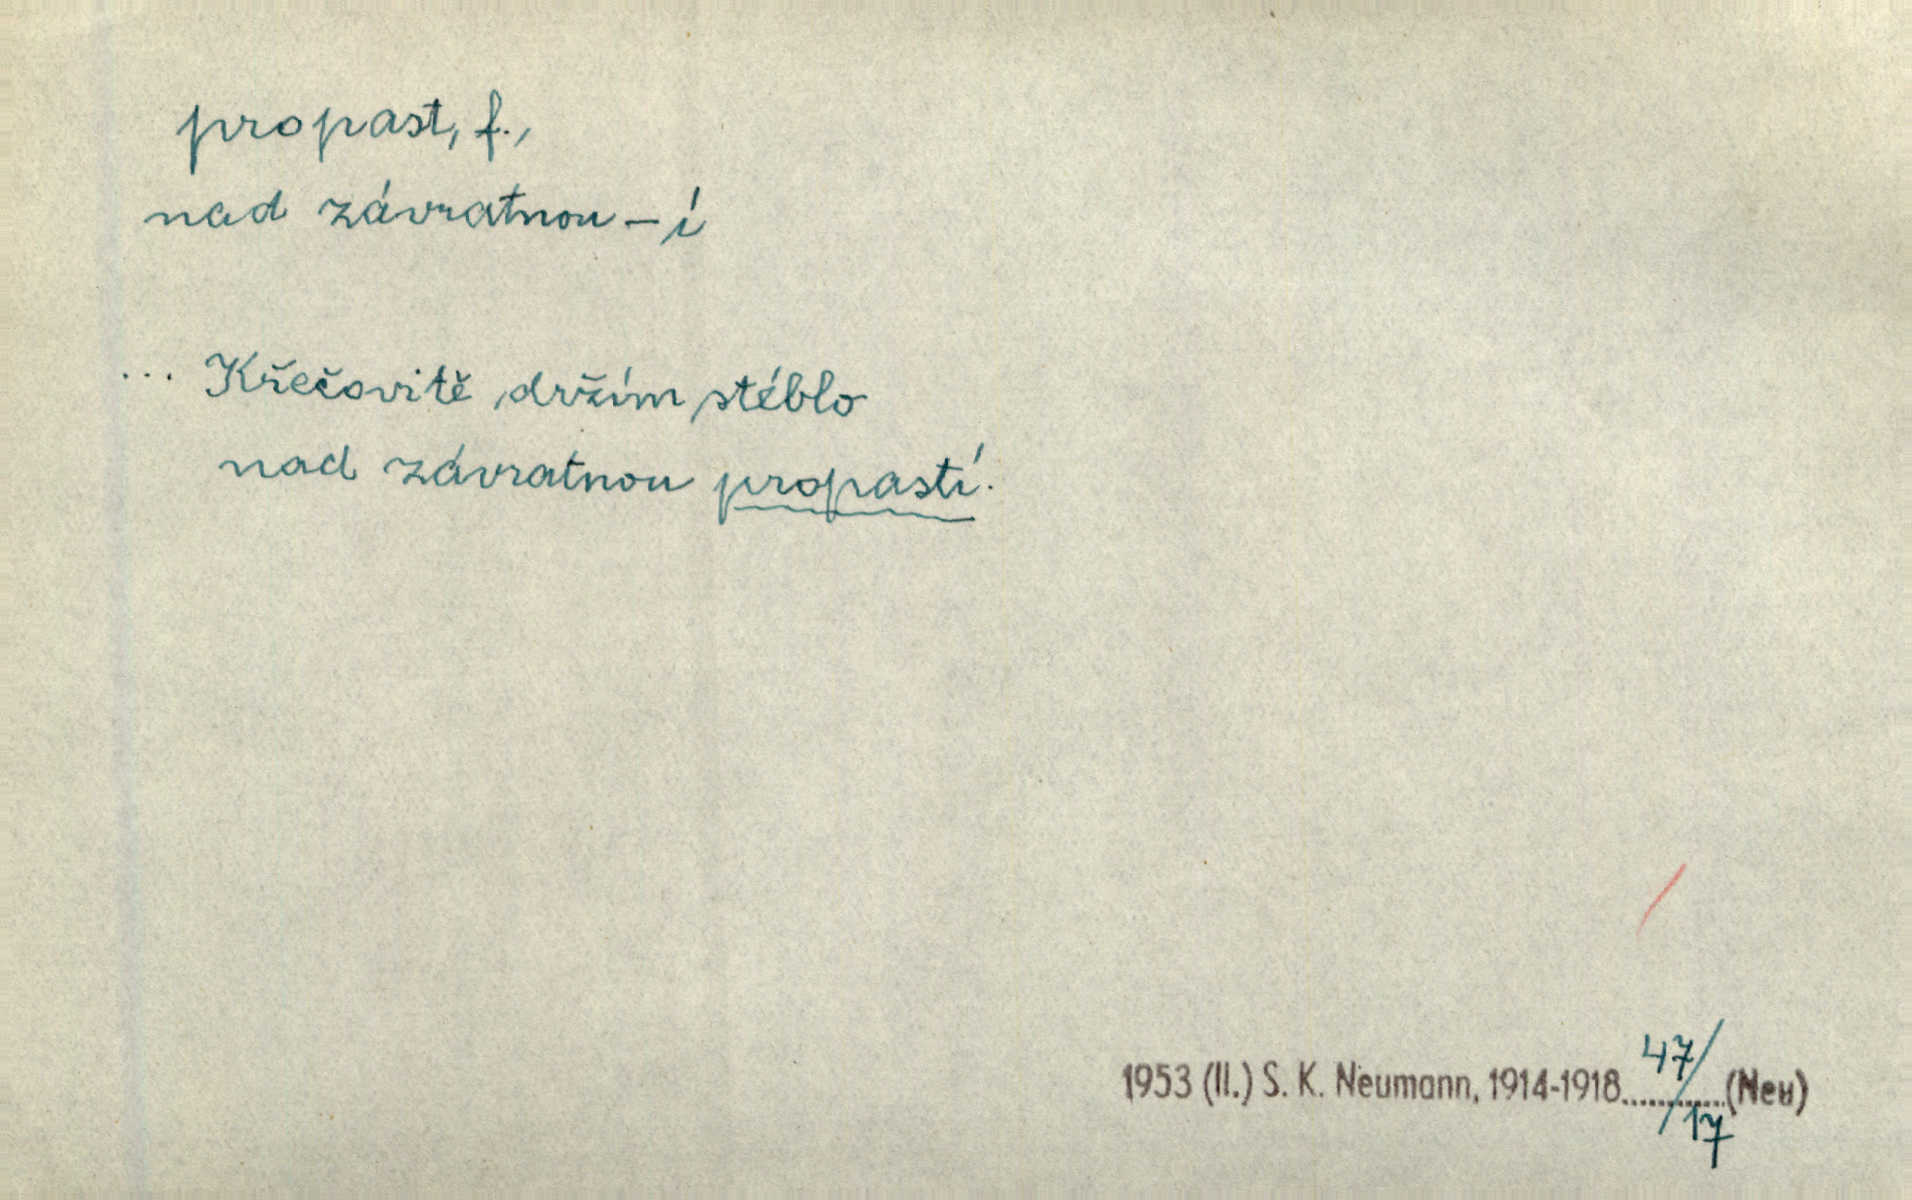 propast, f.,
nad závratnou – í
... Křečovitě držím stéblo
nad závratnou propastí.
1953 (II.) S. K. Neumann, 1914-1918 47/17 (Neu)